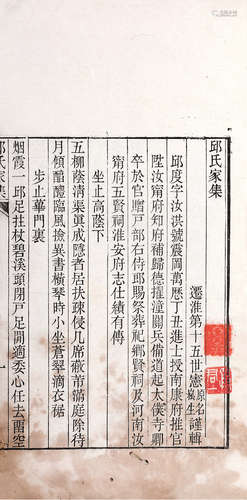 邱氏家集
遷淮第十五世憲原名寫生謹輯
邱度字汝洪號震岡萬歷丁丑進士授南康府推官
陞汝甯府知府補歸德擢潼關兵備道起太僕寺卿
卒於官贈戶部右侍郎賜祭葬祀鄉賢祠及河南汝
甯府五賢祠淮安府志仕績有傳
坐止高蔭下
五柳蔭清渠眞成隱者居扶疎侵几席蔽芾滿庭除待
月傾醅醴臨風撿異書橫琴時小坐蒼翠滴衣裾
步止蓽門裏
烟霞一邱足拄杖碧溪頭閉戶足閒適委心任去留空
邱氏家集
一